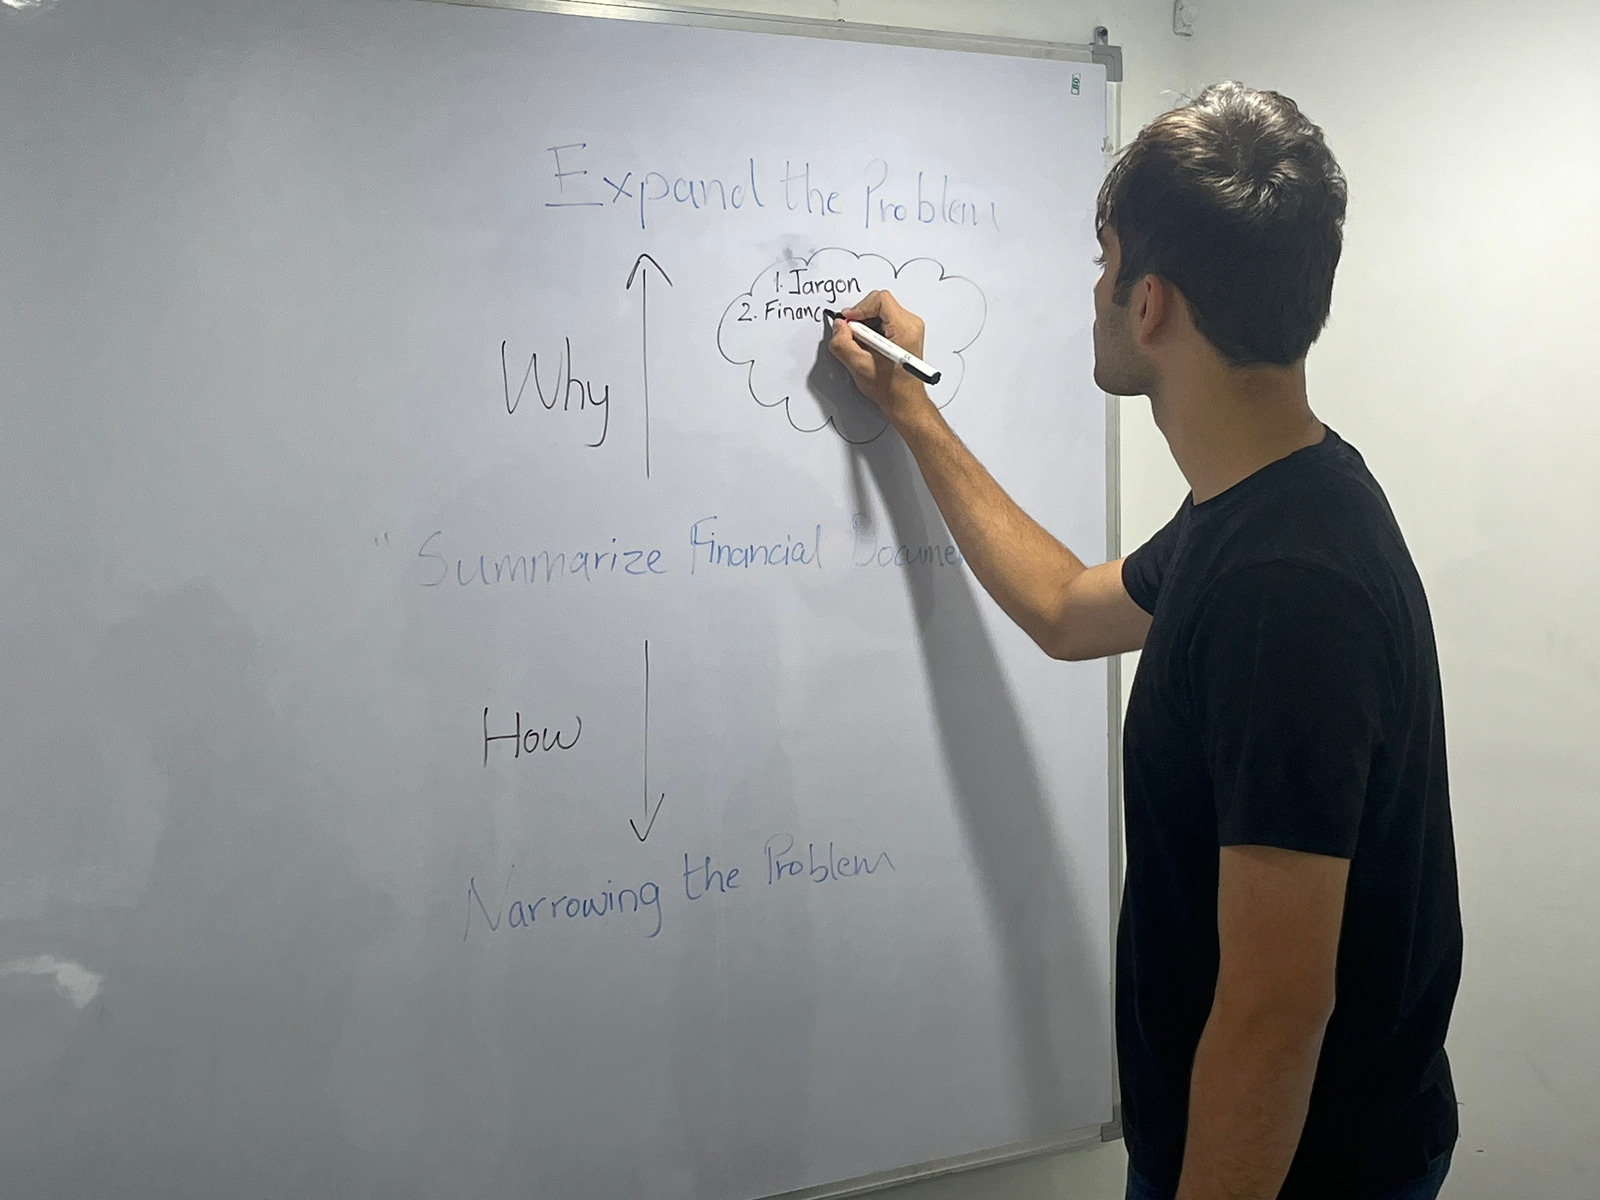 Expand the Problem
1. Jargon
2. Financ
Why
" Summarize Financial Docume
How
Narrowing the Problem